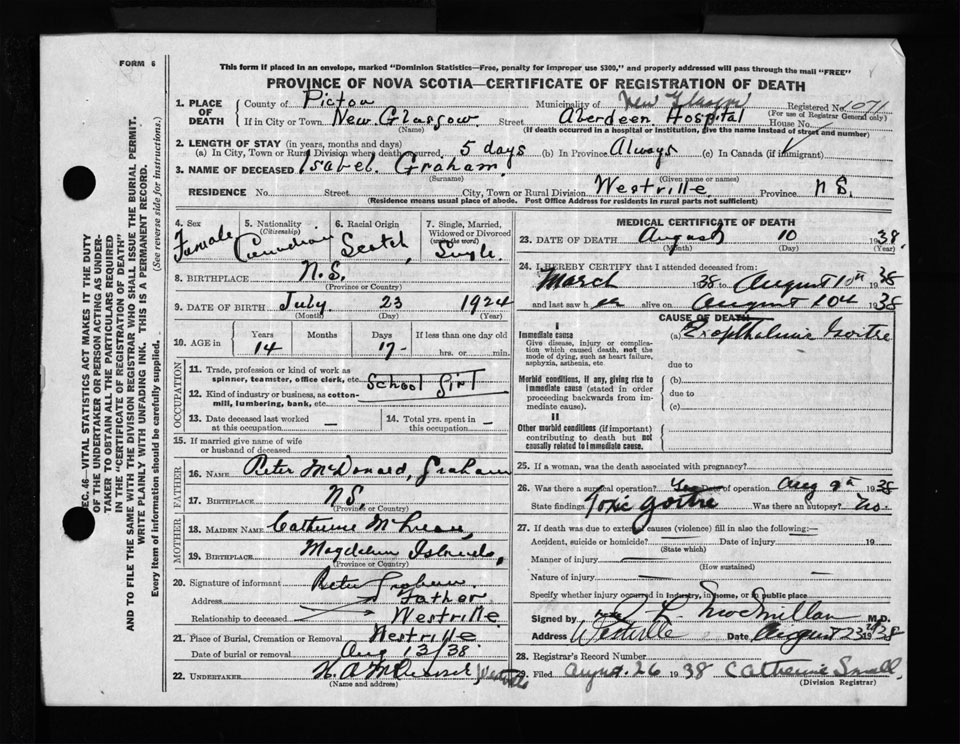 FORM 6
This form if placed in an envelope, marked "Dominion Statistics—Free, penalty for improper use $300," and properly addressed will pass through the mail "FREE"
PROVINCE OF NOVA SCOTIA—CERTIFICATE OF REGISTRATION OF DEATH
1. PLACE OF DEATH County of Pictou Municipality of New Glasgow Registered No. 1071
(For use of Registrar General only)
If in City or Town New Glasgow Street Aberdeen Hospital House No.
(Name) (If death occurred in a hospital or institution, give the name instead of street and number)
2. LENGTH OF STAY (in years, months and days)
(a) In City, Town or Rural Division where death occurred 5 days (b) In Province Always (c) In Canada (if immigrant)
3. NAME OF DECEASED Isabel Graham
(Surname) (Given name or names)
RESIDENCE No. Street City, Town or Rural Division Westville Province N.S.
(Residence means usual place of abode. Post Office Address for residents in rural parts not sufficient)
4. Sex Female
5. Nationality (Citizenship) Canadian
6. Racial Origin Scotch
7. Single, Married, Widowed or Divorced (write the word) Single
8. BIRTHPLACE N.S.
(Province or Country)
9. DATE OF BIRTH July 23 1924
(Month) (Day) (Year)
10. AGE in Years Months Days If less than one day old
14 17 hrs. or min.
OCCUPATION
11. Trade, profession or kind of work as spinner, teamster, office clerk, etc. School Girl
12. Kind of industry or business, as cotton-mill, lumbering, bank, etc.
13. Date deceased last worked at this occupation —
14. Total yrs. spent in this occupation —
15. If married give name of wife or husband of deceased
FATHER
16. NAME Peter McDonard, Graham
17. BIRTHPLACE N.S.
(Province or Country)
MOTHER
18. MAIDEN NAME Catherine
19. BIRTHPLACE Magdalen Islands,
(Province or Country)
20. Signature of informant Peter Graham
Address Father
Relationship to deceased Westville
21. Place of Burial, Cremation or Removal Westville
Date of burial or removal Aug 13/38
22. UNDERTAKER H. A. Westville
(Name and address)
MEDICAL CERTIFICATE OF DEATH
23. DATE OF DEATH August 10 1938.
(Month) (Day) (Year)
24. I HEREBY CERTIFY that I attended deceased from:
March 1938 to August 10th 1938
and last saw her alive on August 10th 1938
CAUSE OF DEATH
I
Immediate cause (a) Exopthalmic Goitre
Give disease, injury or complication which caused death, not the mode of dying, such as heart failure, asphyxia, asthenia, etc
due to
Morbid conditions, if any, giving rise to immediate cause (stated in order proceeding backwards from immediate cause).
(b)
due to
(c)
II
Other morbid conditions (if important) contributing to death but not causally related to immediate cause.
25. If a woman, was the death associated with pregnancy?
26. Was there a surgical operation? Yes Date of operation Aug 9th 1938
State findings Toxic goitre Was there an autopsy? No.
27. If death was due to external causes (violence) fill in also the following:—
Accident, suicide or homicide? Date of injury 19
(State which)
Manner of injury
(How sustained)
Nature of injury
Specify whether injury occurred in industry, in home, or in public place
Signed by McMillan M.D.
Address Westville Date August 23rd 1938
28. Registrar's Record Number
29. Filed August 26 1938 Catherine Small
(Division Registrar)
SEC. 46—VITAL STATISTICS ACT MAKES IT THE DUTY
OF THE UNDERTAKER OR PERSON ACTING AS UNDER-
TAKER TO OBTAIN ALL THE PARTICULARS REQUIRED
IN THE "CERTIFICATE OF REGISTRATION OF DEATH"
AND TO FILE THE SAME WITH THE DIVISION REGISTRAR WHO SHALL ISSUE THE BURIAL PERMIT.
WRITE PLAINLY WITH UNFADING INK. THIS IS A PERMANENT RECORD.
Every item of information should be carefully supplied. (See reverse side for instructions.)